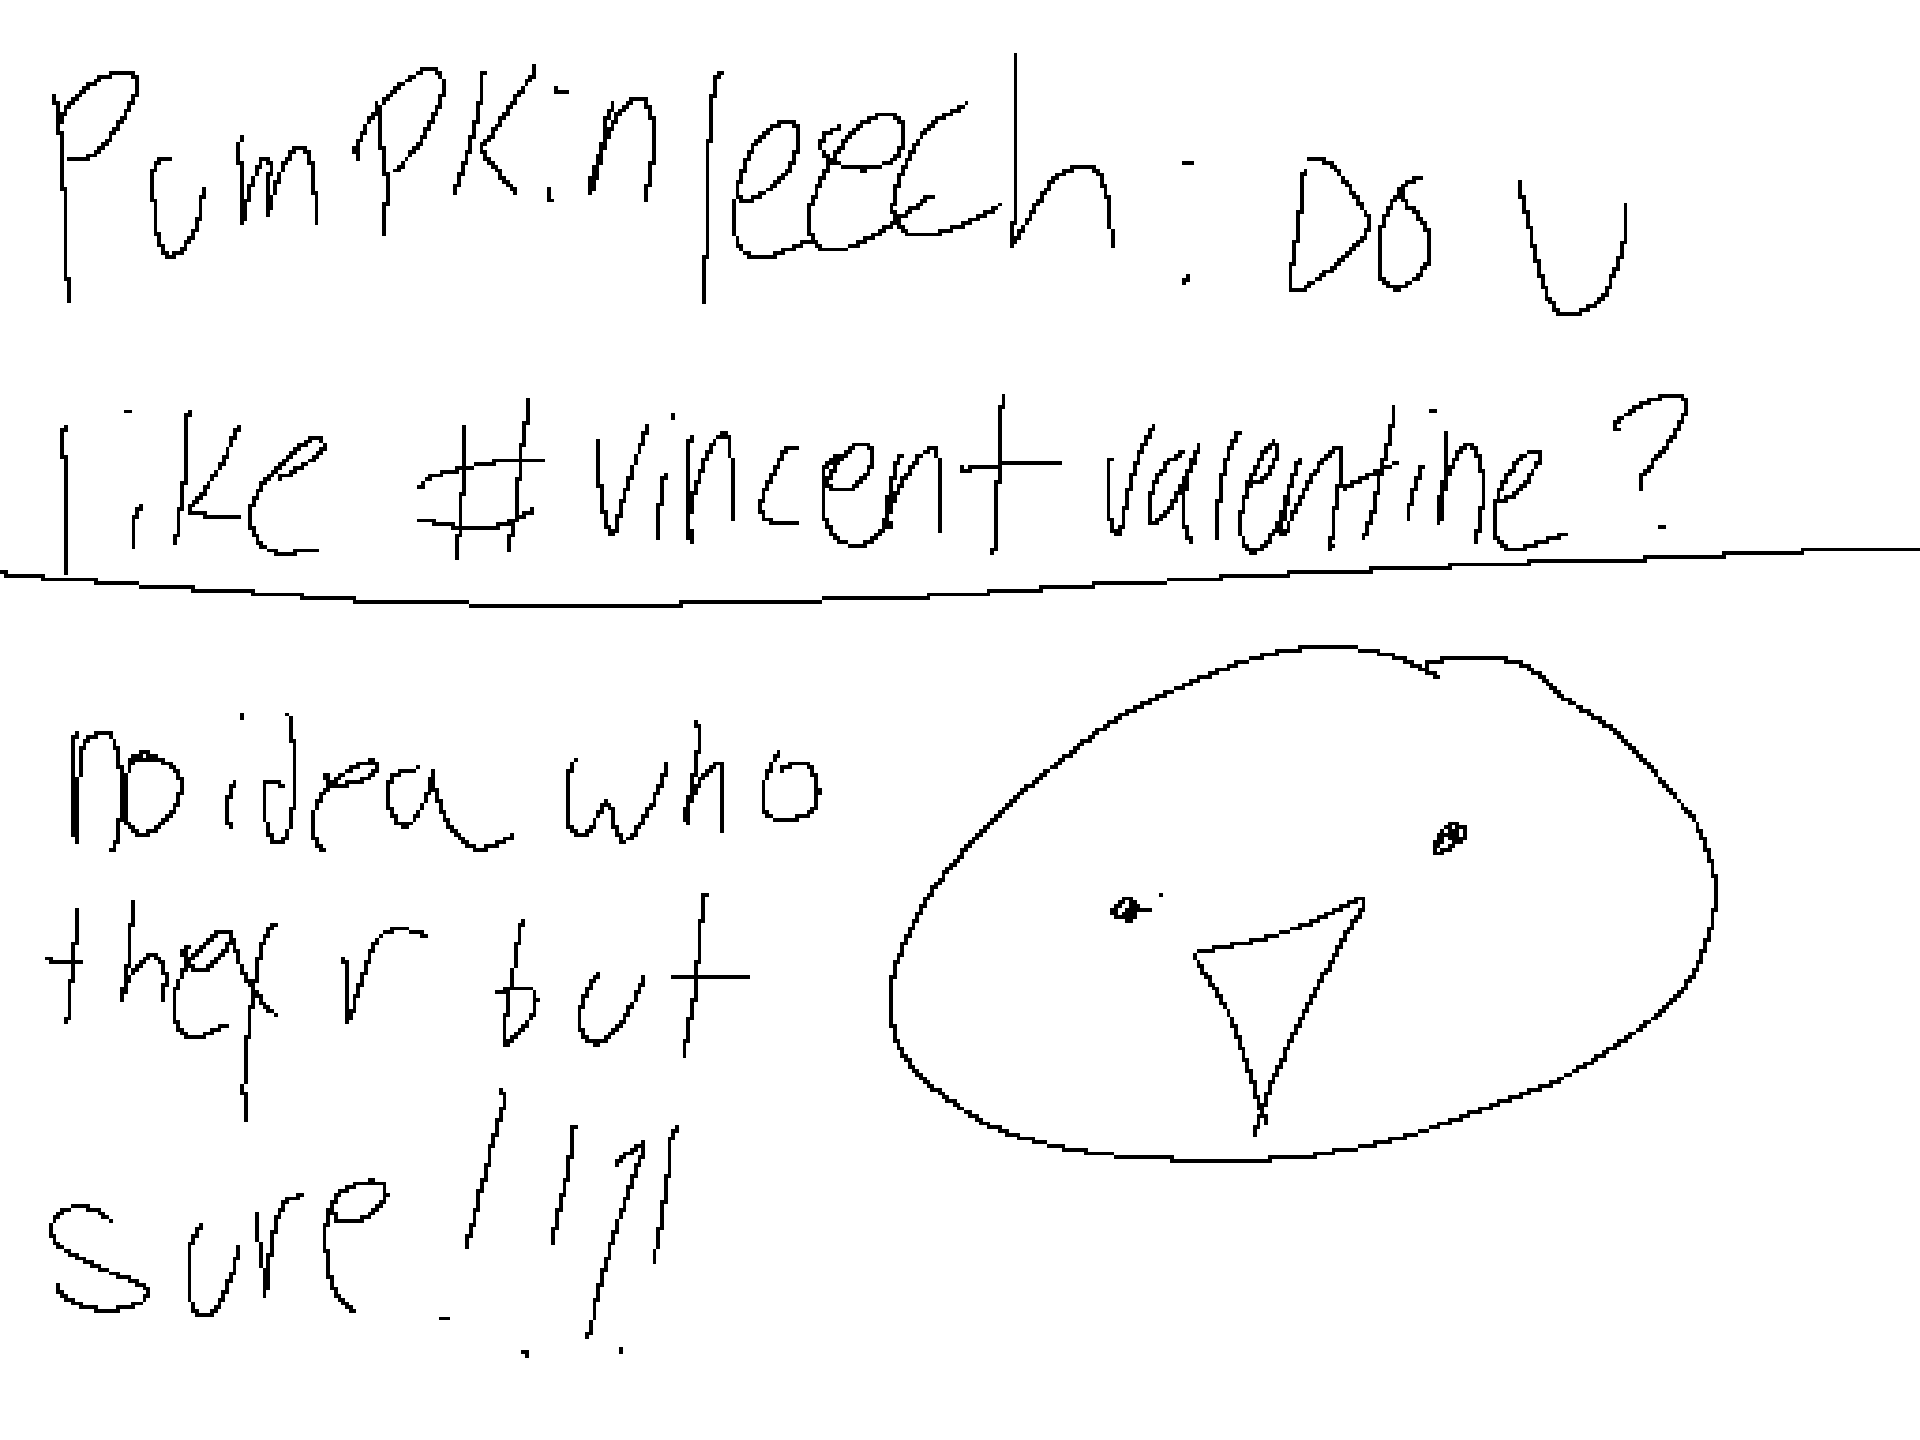 Pumpkinleech: Do U
like #vincent valentine?
no idea who
they r but
sure!!!!